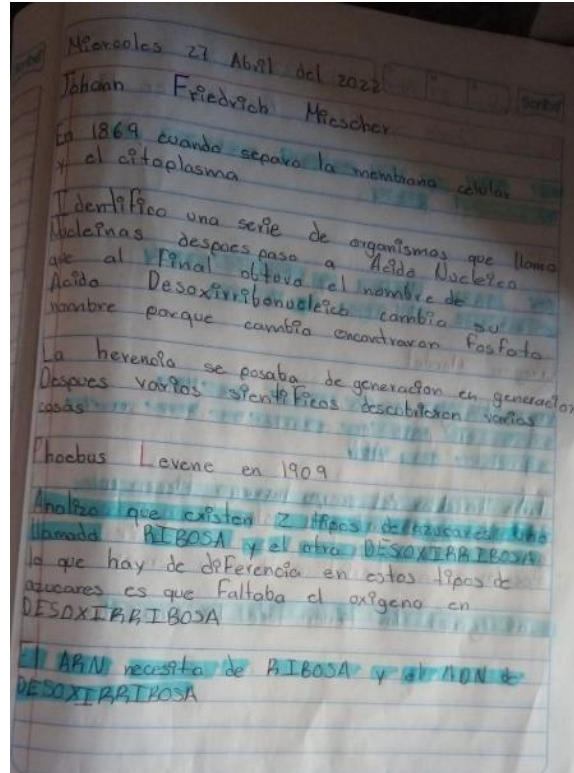 Miercoles 27 Abril del 2022
Johann Friedrich Miescher
En 1869 cuando separo la membrana celular
y el citoplasma
Identifico una serie de organismos que llamo
Nucleinas despues paso a Acido Nucleico
que al Final obtuvo el nombre de
Acido Desoxirribonucleico cambio su
nombre porque cambio encontraron fosfato
La herencia se pasaba de generacion en generacion
Despues varios sientificos descubrieron varias
cosas
Phoebus Levene en 1909
Analizo que existen 2 tipos de azucares uno
llamado RIBOSA y el otro DESOXIRRIBOSA
lo que hay de diferencia en estos tipos de
azucares es que Faltaba el oxigeno en
DESOXIRRIBOSA
El ARN necesita de RIBOSA y el ADN de
DESOXIRRIBOSA
Scribe